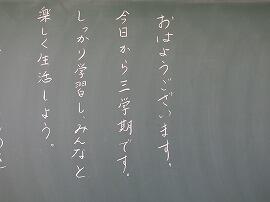 おはようございます。
今日から三学期です。
しっかり学習し、みんなと
楽しく生活しよう。